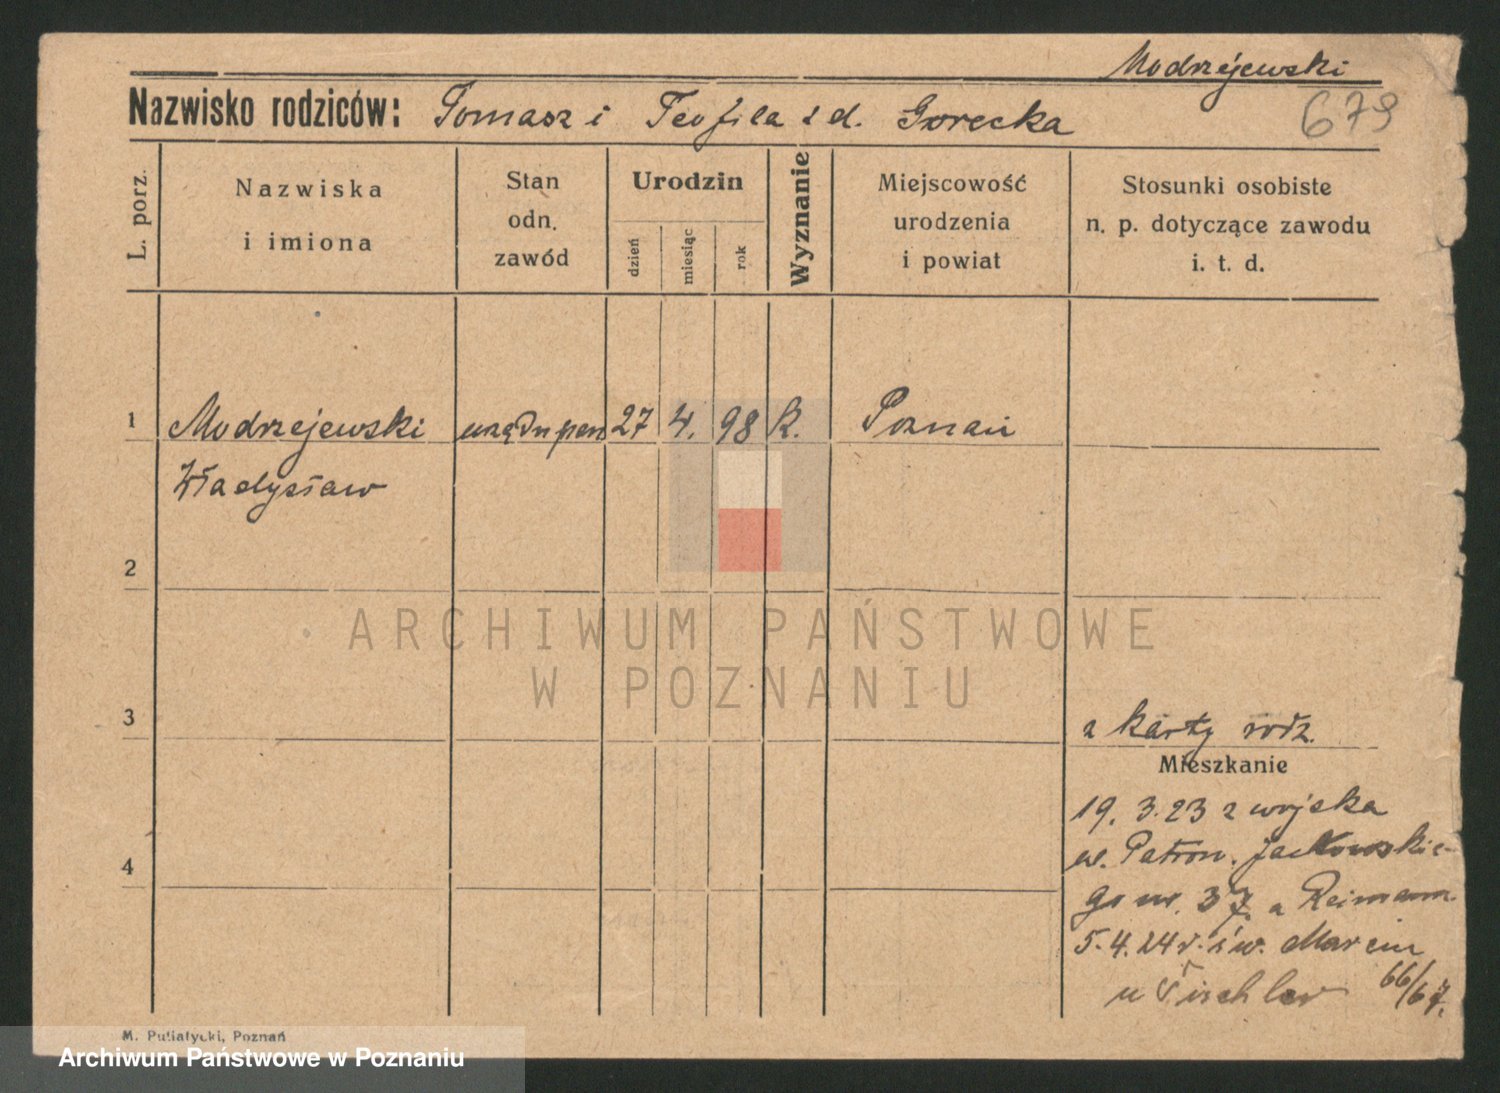 Modrzejewski
679
Nazwisko rodziców: Tomasz i Teofila z d. Gorecka
L. porz.
Nazwiska
i imiona
Stan
odn.
zawód
Urodzin
dzień
miesiąc
rok
Wyznanie
Miejscowość
urodzenia
i powiat
Stosunki osobiste
n. p. dotyczące zawodu
i. t. d.
1 Modrzejewski 27 4. 98 k. Poznań
Władysław
2
ARCHIWUM PAŃSTWOWE
W POZNANIU
3
z karty rodz.
Mieszkanie
19. 3. 23 z wojska
4
w. Patron. Jackowskie-
go nr. 37. a Reimann
5. 4. 24 r. św. Marcin
u Tischler 66/67.
M. Putiatycki, Poznań
Archiwum Państwowe w Poznaniu